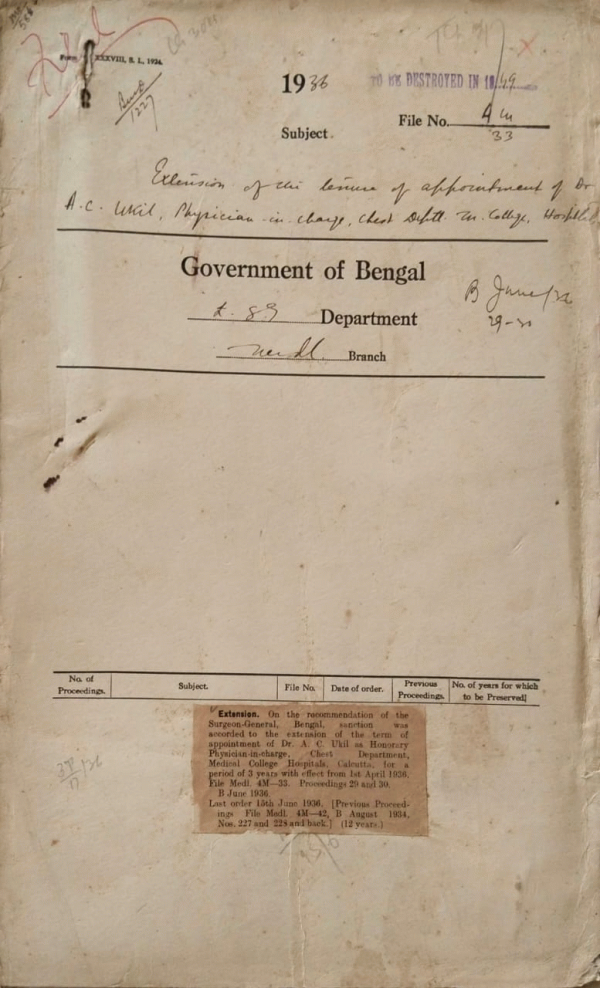 Filed
Form XXXVIII, S. I., 1934.
1936
TO BE DESTROYED IN 1949
File No. 4 m
33
Subject.
Extension of the tenure of appointment of Dr
A.C. Ukil, Physician-in-charge, Chest Deptt. M. College, Hospitals
Government of Bengal
Department
B June/36
29-30
Medl. Branch
No. of Proceedings. Subject. File No. Date of order. Previous Proceedings. No. of years for which to be Preserved
Extension. On the recommendation of the
Surgeon-General, Bengal, sanction was
accorded to the extension of the term of
appointment of Dr. A. C. Ukil as Honorary
Physician-in-charge, Chest Department,
Medical College Hospitals, Calcutta, for a
period of 3 years with effect from 1st April 1936.
File Medl. 4M—33. Proceedings 29 and 30.
B June 1936.
Last order 15th June 1936. [Previous Proceed-
ings File Medl. 4M—42, B August 1934,
Nos. 227 and 228 and back.] (12 years.)